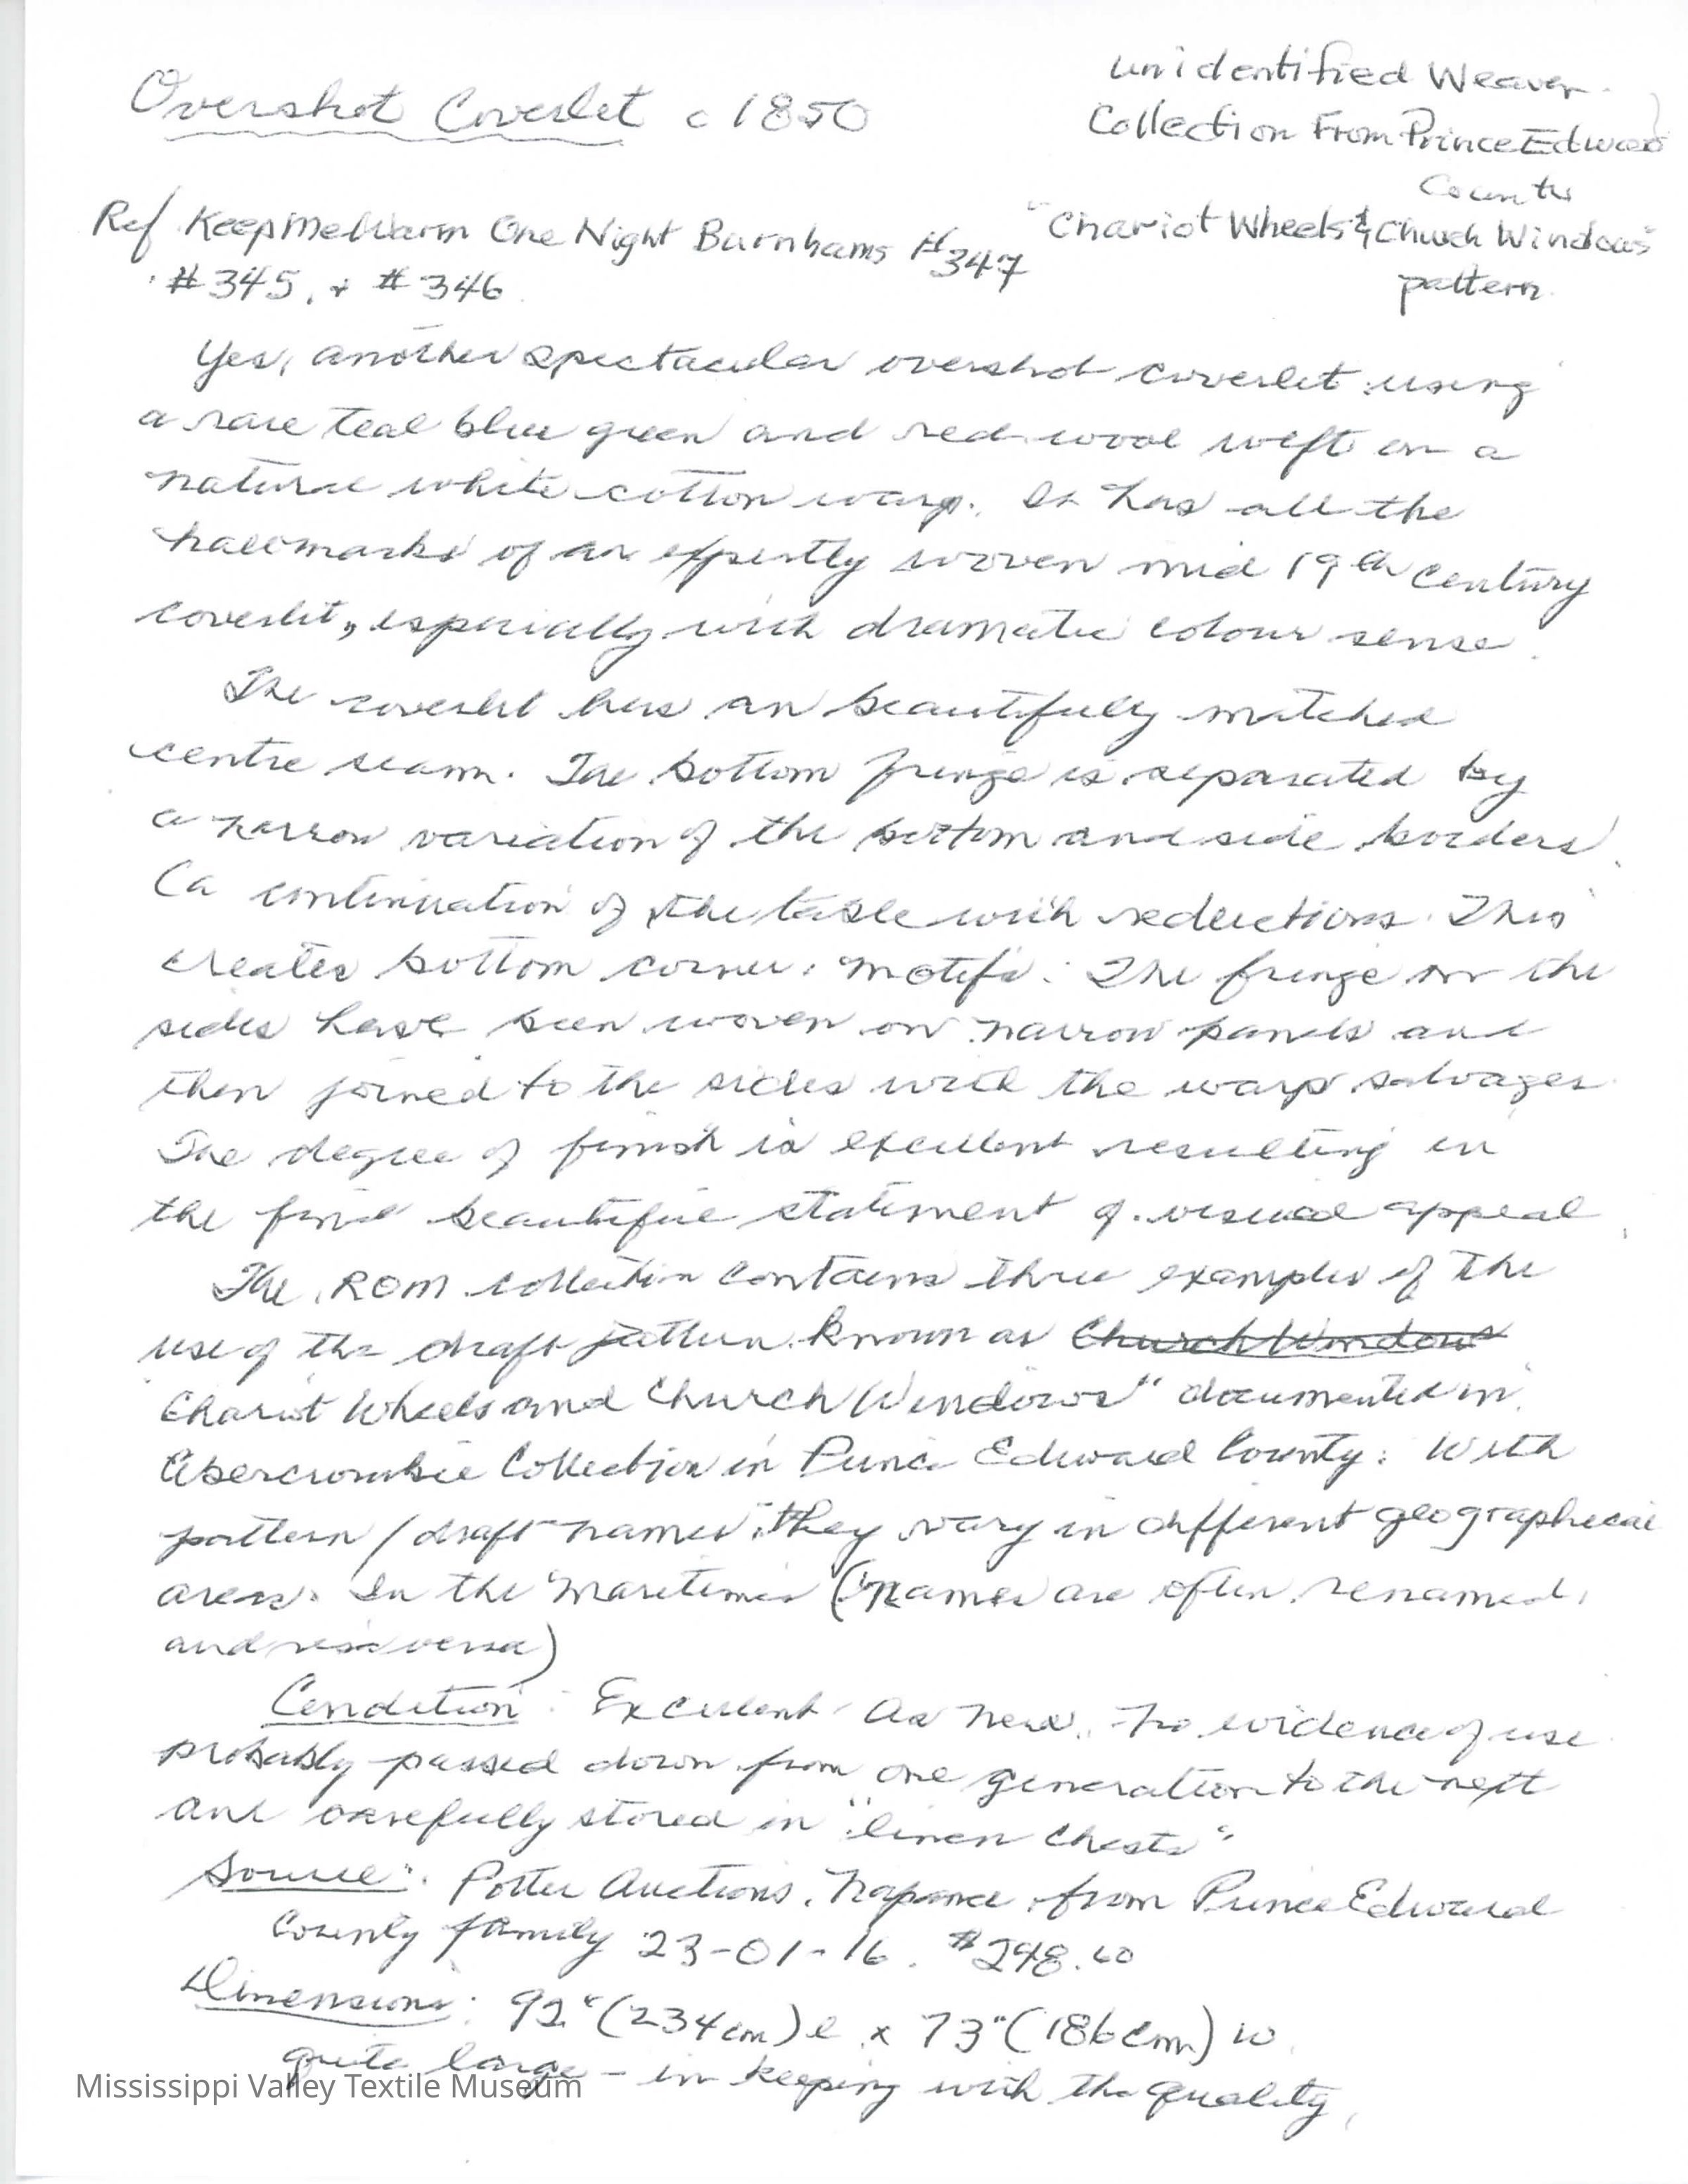 Overshot Coverlet c 1850
unidentified Weaver.
Collection From Prince Edward
County
"Chariot Wheels & Church Windows"
pattern.
Ref KeepMeWarm One Night Burnhams #347
#345, + #346
Yes, another spectacular overshot coverlet using
a rare teal blue green and red wool weft on a
natural white cotton warp. It has all the
hallmarks of an expertly woven mid 19th century
coverlet, especially with dramatic colour sense.
The coverlet has an beautifully matched
centre seam. The bottom fringe is separated by
a narrow variation of the bottom and side borders.
(a continuation of the table with reductions. This
creates bottom corner motifs. The fringe on the
sides have been woven on narrow panels and
then joined to the sides with the warp salvages.
The degree of finish is excellent resulting in
the final beautiful statement of visual appeal.
The ROM collection contains three examples of the
use of the draft pattern known as Church Windows
Chariot Wheels and Church Windows" documented in
Abercrombie Collection in Prince Edward County. With
pattern / draft names they vary in different geographical
areas. In the Maritimes (names are often renamed,
and vise versa)
Condition: Excellent As new. No evidence of use
probably passed down from one generation to the next
and carefully stored in "linen chests"
Source: Potter Auctions, Napanee from Prince Edward
County family 23-01-16. $298.60
Dimensions: 92" (234cm) l x 73" (186cm) w.
quite large - in keeping with the quality,
Mississippi Valley Textile Museum